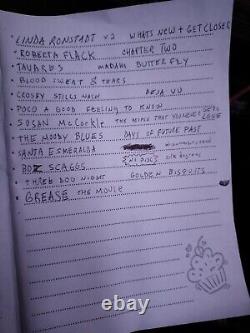 LINDA RONSTADT x 2 WHATS NEW + GET CLOSER
ROBERTA FLACK CHAPTER TWO
TAVARES MADAM BUTTERFLY
BLOOD SWEAT & TEARS
CROSBY STILLS NASH DEJA VU
POCO A GOOD FEELING TO KNOW
SUSAN McCorkle THE MUSIC THAT YOU
THE MOODY BLUES DAYS OF FUTURE PAST
SANTA ESMERALDA
BOZ SCAGGS (NO DISC) silk degrees
THREE DOG NIGHT GOLDEN BISCUITS
GREASE THE MOVIE